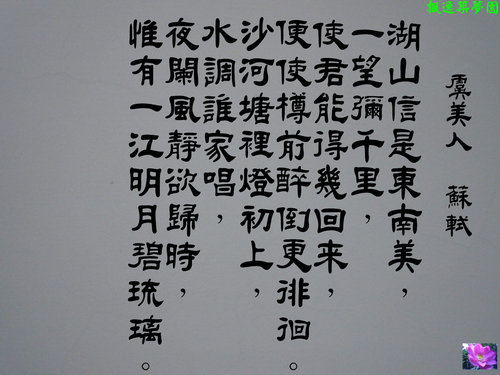 虞美人 蘇軾
湖山信是東南美，
一望彌千里，
使君能得幾回來，
便使樽前醉倒更徘徊。
沙河塘裡燈初上，
水調誰家唱，
夜闌風靜欲歸時，
惟有一江明月碧琉璃。